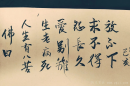 佛曰
人生有八苦
生老病死
愛別離
怨長久
求不得
放不下
己亥